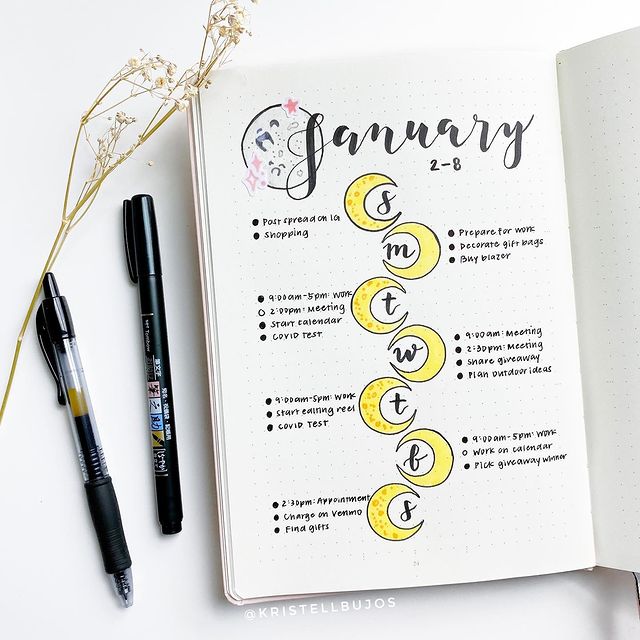 January
2-8
S
● Post spread on IG
● Shopping
m
● Prepare for work
● Decorate gift bags
● Buy blazer
t
● 9:00am-5pm: Work
○ 2:00pm: Meeting
● Start calendar
● COVID TEST
w
● 9:00am: Meeting
● 2:30pm: Meeting
● Share giveaway
● Plan outdoor ideas
t
● 9:00am-5pm: Work
● Start editing reel
● COVID TEST
f
● 9:00am-5pm: Work
○ Work on calendar
● Pick giveaway winner
s
● 2:30pm: Appointment
● Charge on Venmo
● Find gifts
@KRISTELLBUJOS